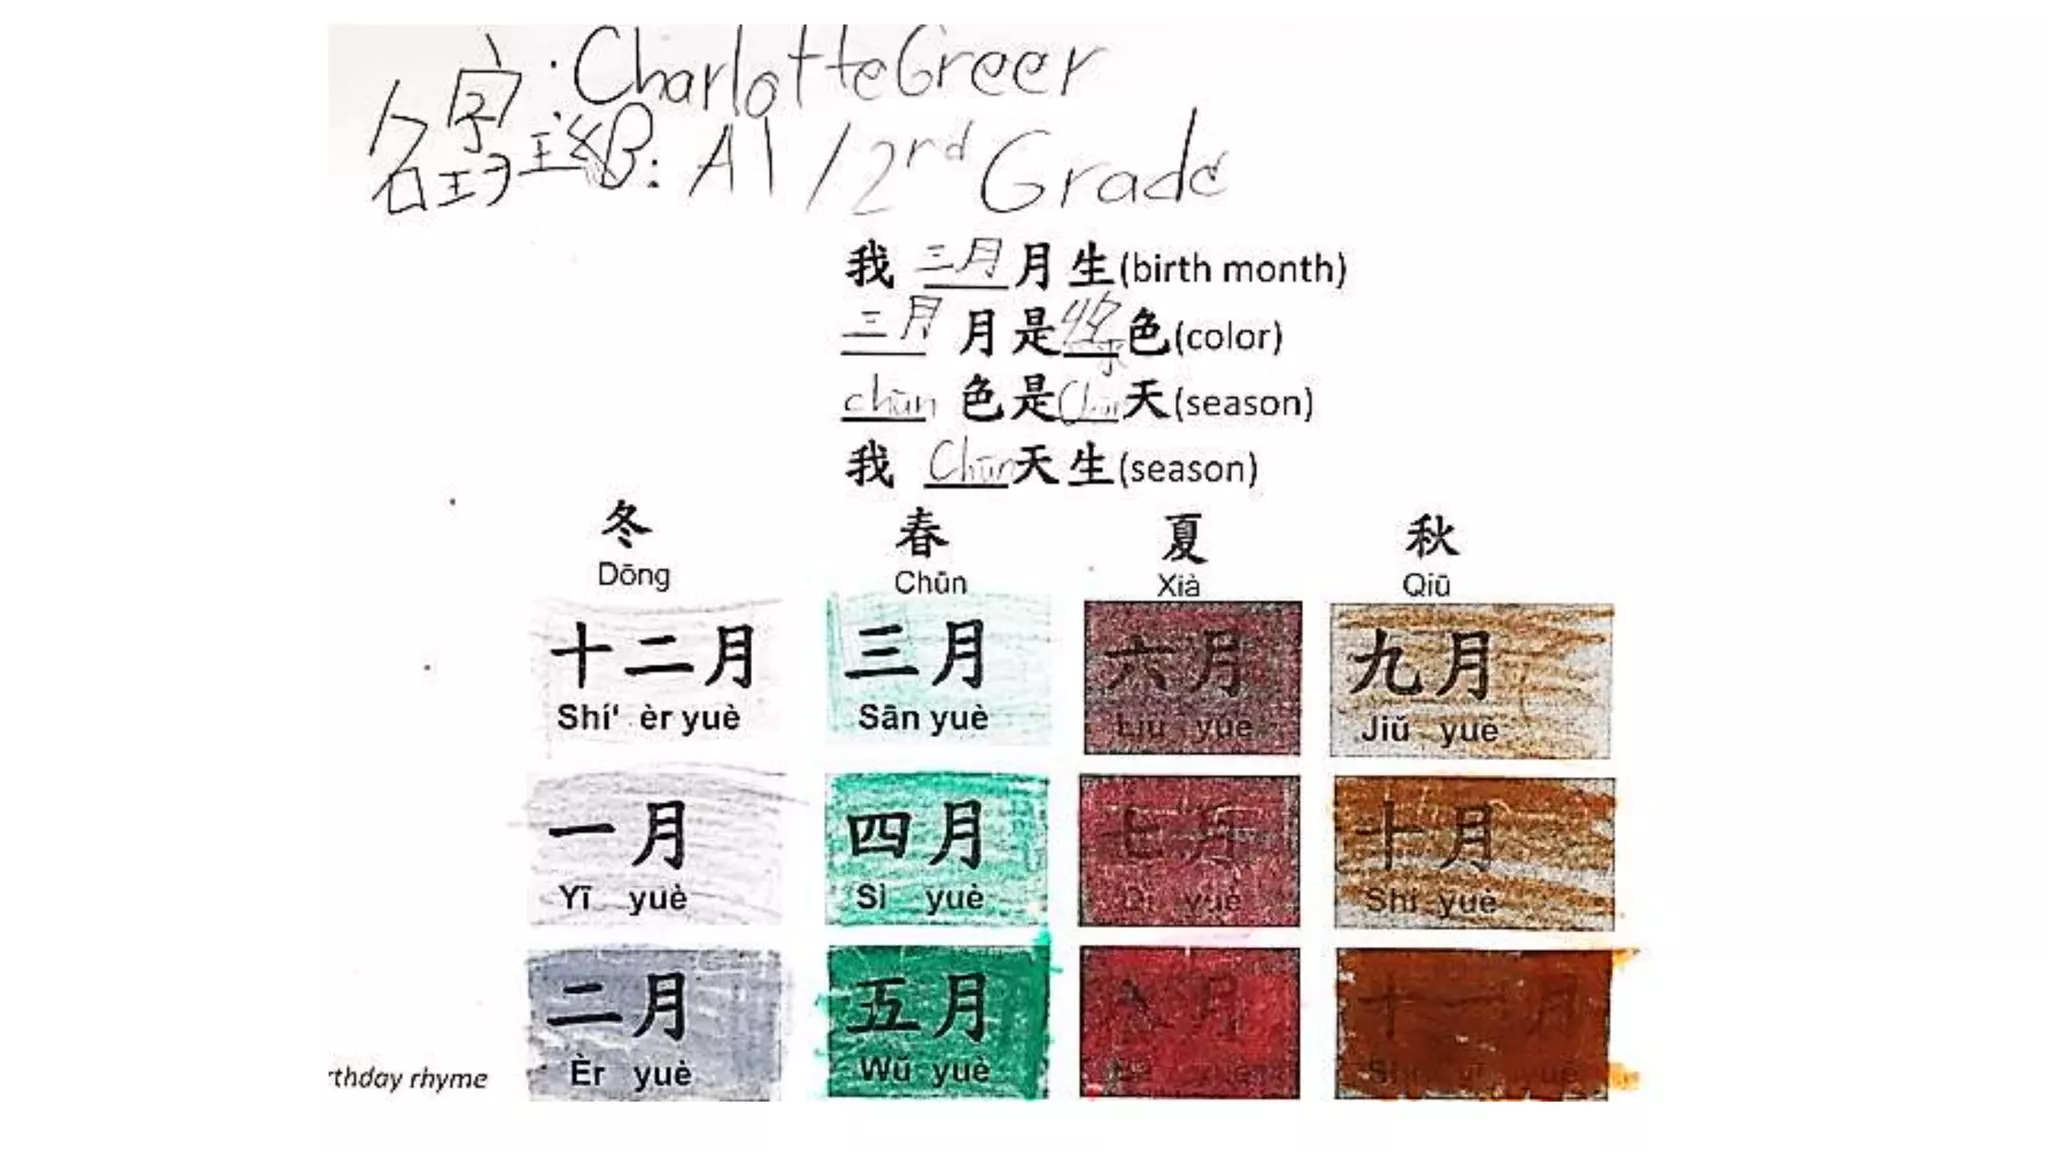 名字:CharlotteGreer
班级: A1/2rd Grade
我 三月月生(birth month)
三月 月是绿色(color)
chūn 色是Chūn天(season)
我 Chūn天生(season)
冬 春 夏 秋
Dōng Chūn Xià Qiū
十二月 三月 六月 九月
Shí' èr yuè Sān yuè Liù yuè Jiǔ yuè
一月 四月 七月 十月
Yī yuè Sì yuè Qī yuè Shí yuè
二月 五月 八月 十一月
Èr yuè Wǔ yuè yuè yuè
rthday rhyme